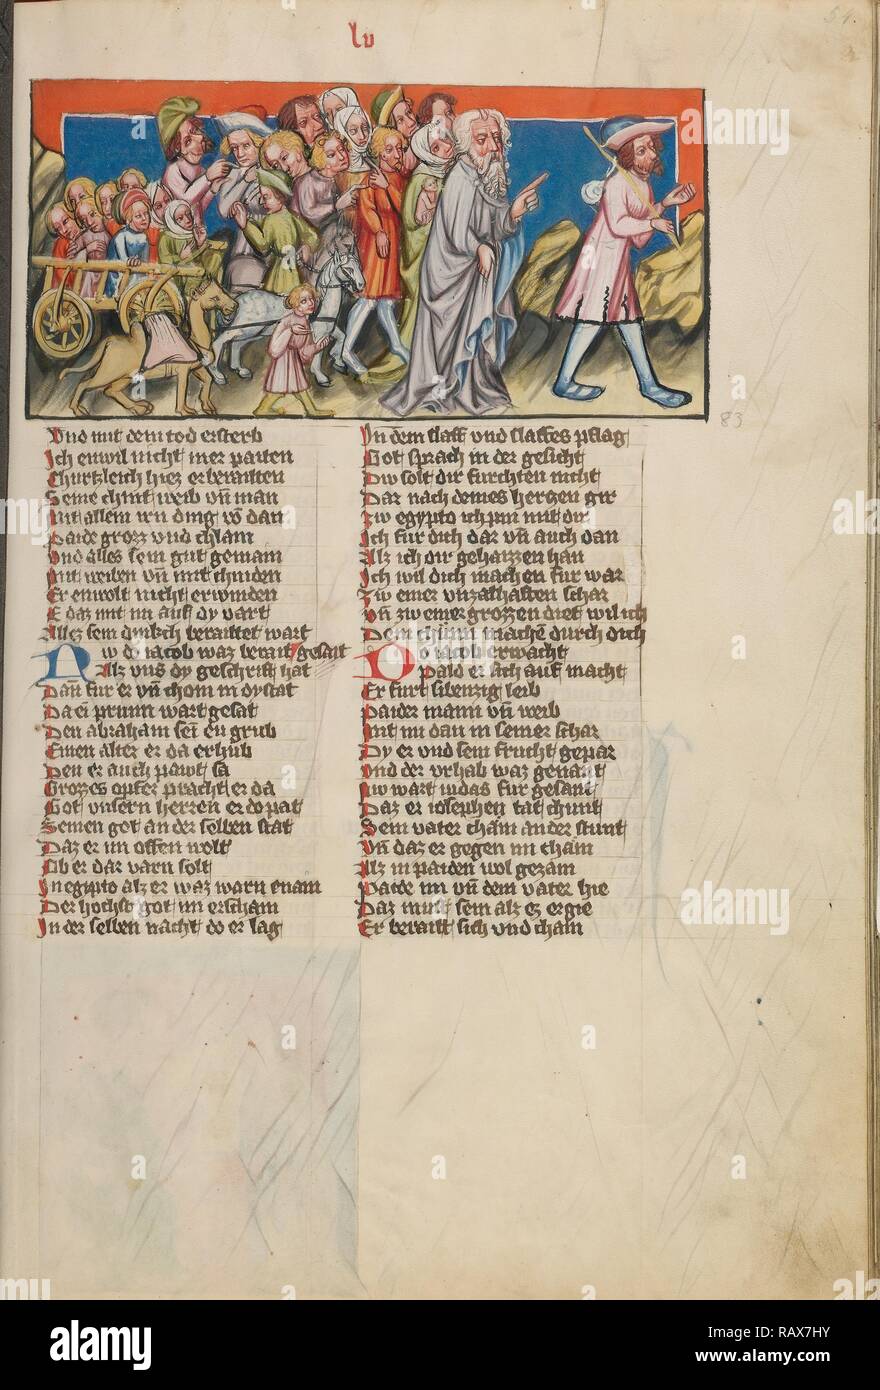 lv
54.
83
Und mit dem tod ersterb
Ich enwil nicht mer paiten
Churtzleich hiez er beraitten
Seine chint weib vn̄ man
Mit allem irn ding vō dan
Paide grozz vnd chlain
Und alles sein gut gemain
Mit weiben vn̄ mit chinden
Er enwolt nicht erwinden
E daz mit im auf dy vart
Allez sein dinch beraittet wart
Nw do iacob waz berait gesait
Als vns dy geschrift hat
Dan fur er vn̄ chom in dy stat
Da ei prunn wart gesat
Den abraham sein en grub
Einen alter er da erhub
Den er auch pawt sa
Grozzes opfer pracht er da
Got vnsern herren er do pat
Seinen got an der selben stat
Daz er im offen wolt
Ob er dar varn solt
In egipto alz er waz warn enain
Der hochst got im erschain
In der selben nacht do er lag
In dem slaff vnd slaffes pflag
Got sprach in der gesicht
Diw solt dir furchten nicht
Dar nach deines hertzen gir
Zw egypto ich pin mit dir
Ich fur dich dar vn̄ auch dan
Alz ich dir gehaizzen han
Ich wil dich machen fur war
Zw einer vnzalhaften schar
Vn̄ zw einer grozzen diet wil ich
Dein chunn machē durch dich
Do iacob erwacht
Pald er sich auf macht
Er furt sibenzig leib
Paider mann vn̄ weib
Mit im dan in seiner schar
Dy er vnd sein frucht gepar
Und der vrhab waz genant
Nw wart iudas fur gesant
Daz er iosephen tat chunt
Sein vater cham an der stunt
Vn̄ daz er gegen im cham
Alz in paiden wol gezam
Paide im vn̄ dem vater hie
Daz must sein alz ez ergie
Er beraitt sich vnd cham
alamy
Image ID: RAX7HY
www.alamy.com